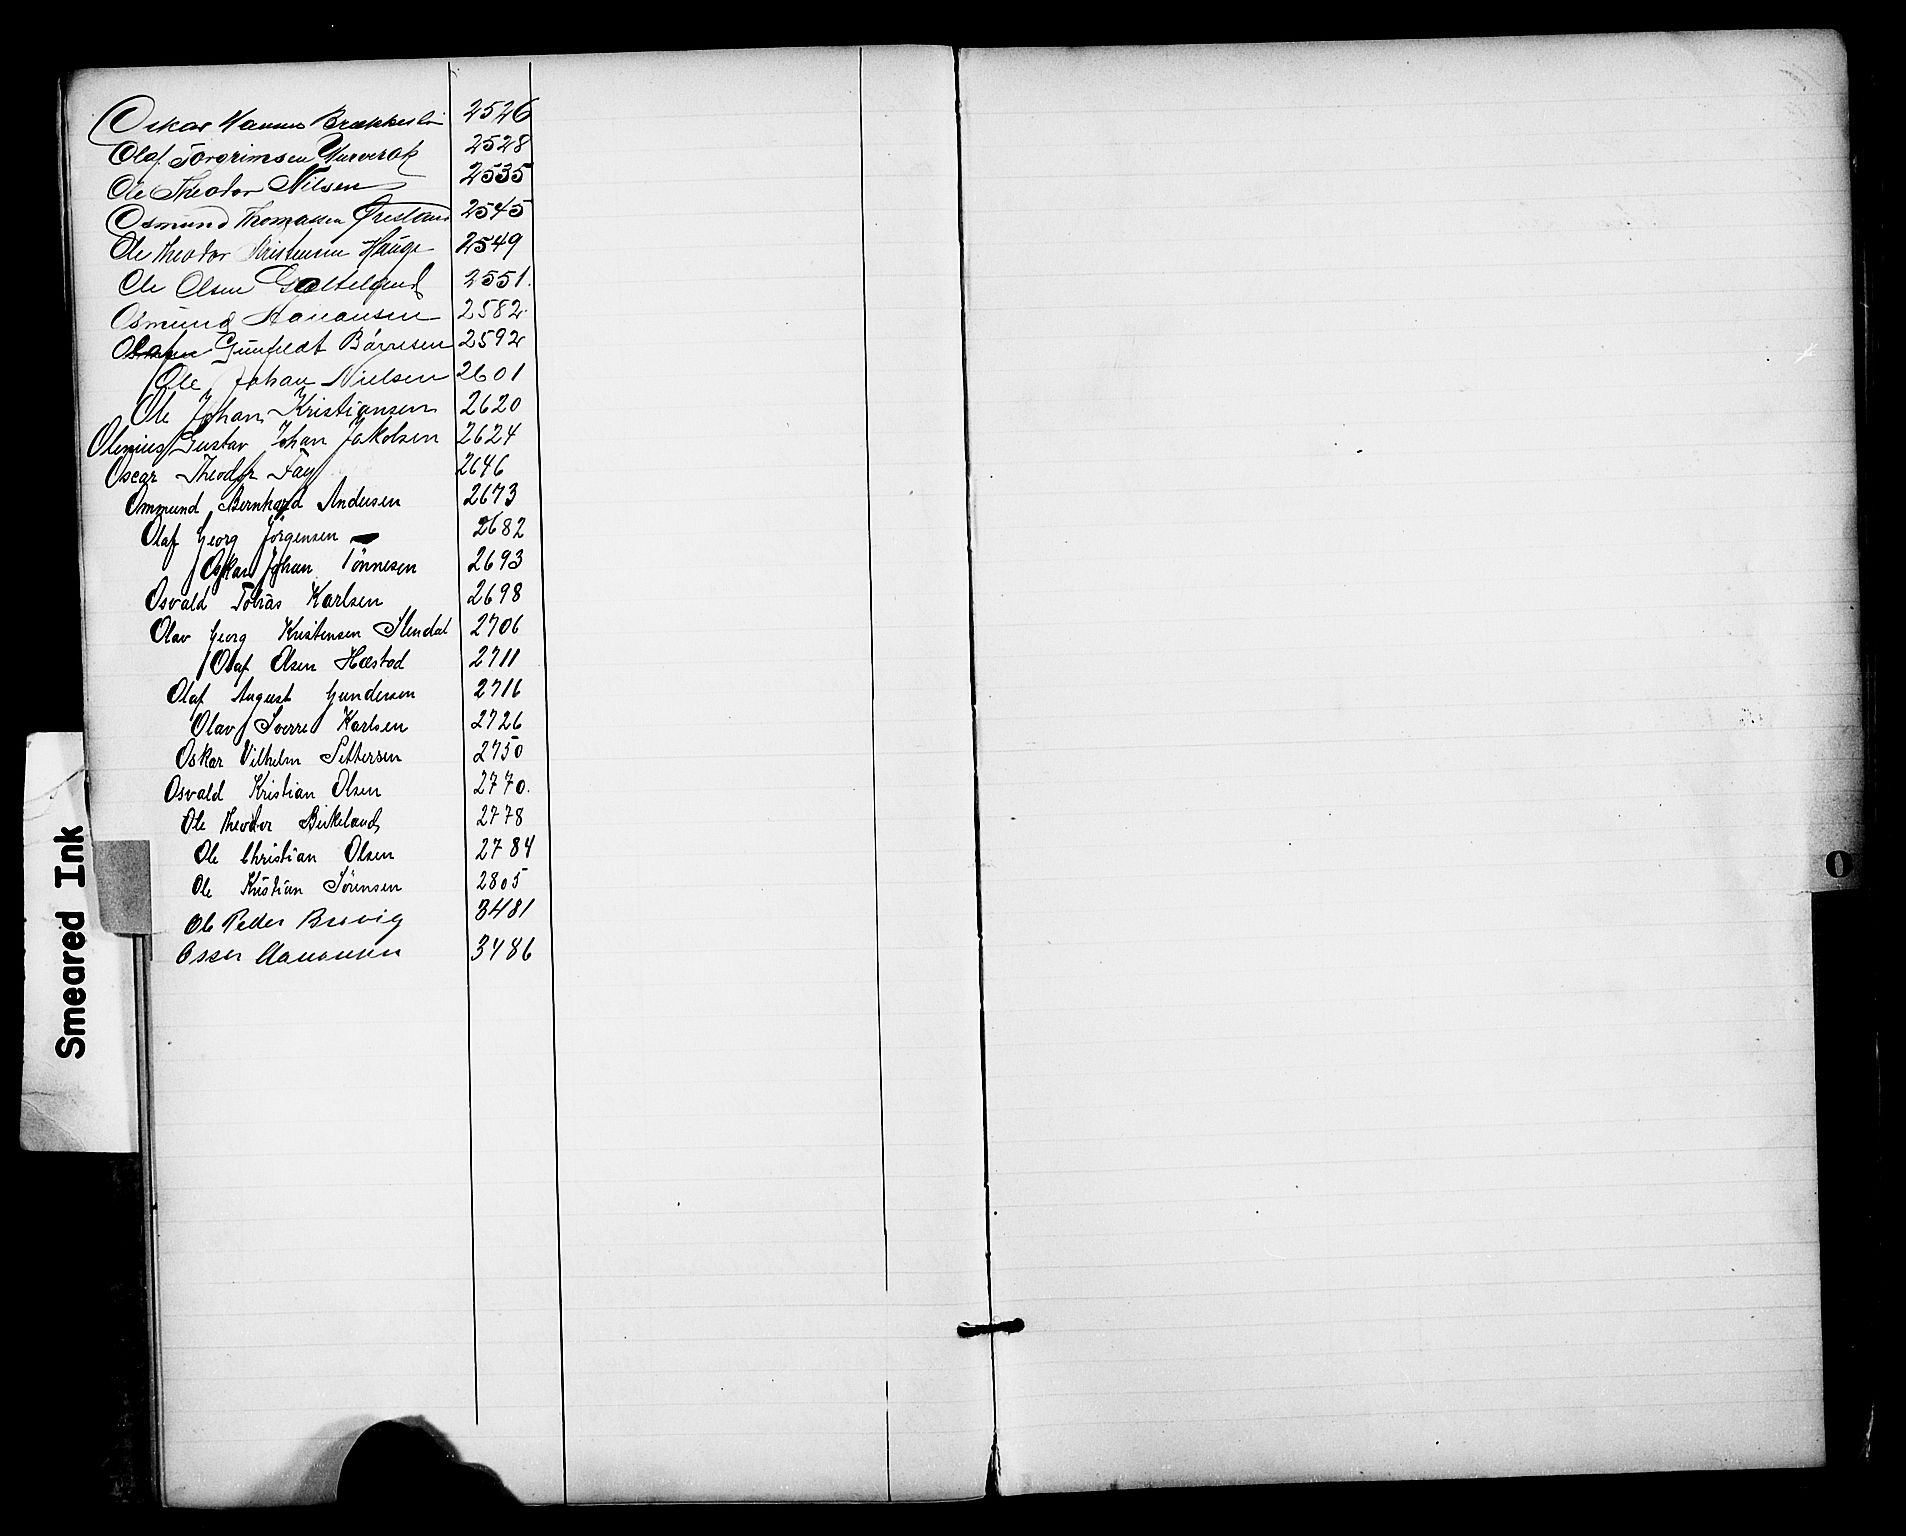 Oskar Hannes 2526
Olaf Torgrimsen 2528
Ole Theodor Nilsen 2535
Osmund Thomassen 2545
Ole Theodor Kristensen Hauge 2549
Ole Olsen 2551.
Osmund 2582.
Olaf Gunfeldt Börresen 2592
Ole Johan Nielsen 2601
Ole Johan Kristiansen 2620
Olenius Gustav Johan Jakobsen 2624
Oscar Theodor Fay 2646
Ommund Bernhard Andersen 2673
Olaf Georg Jörgensen 2682
Oskar Johan Tönnesen 2693
Osvald Tobias Karlsen 2698
Olav Georg Kristensen Stendal 2706
Olaf Olsen Hæstad 2711
Olaf August Gundersen 2716
Olav Sverre Karlsen 2726
Oskar Vilhelm Pettersen 2750
Osvald Kristian Olsen 2770.
Ole Theodor Birkeland 2778
Ole Christian Olsen 2784
Ole Kristian Sörensen 2805
Ole Peder Bresvig 3481
3486
Smeared Ink
O